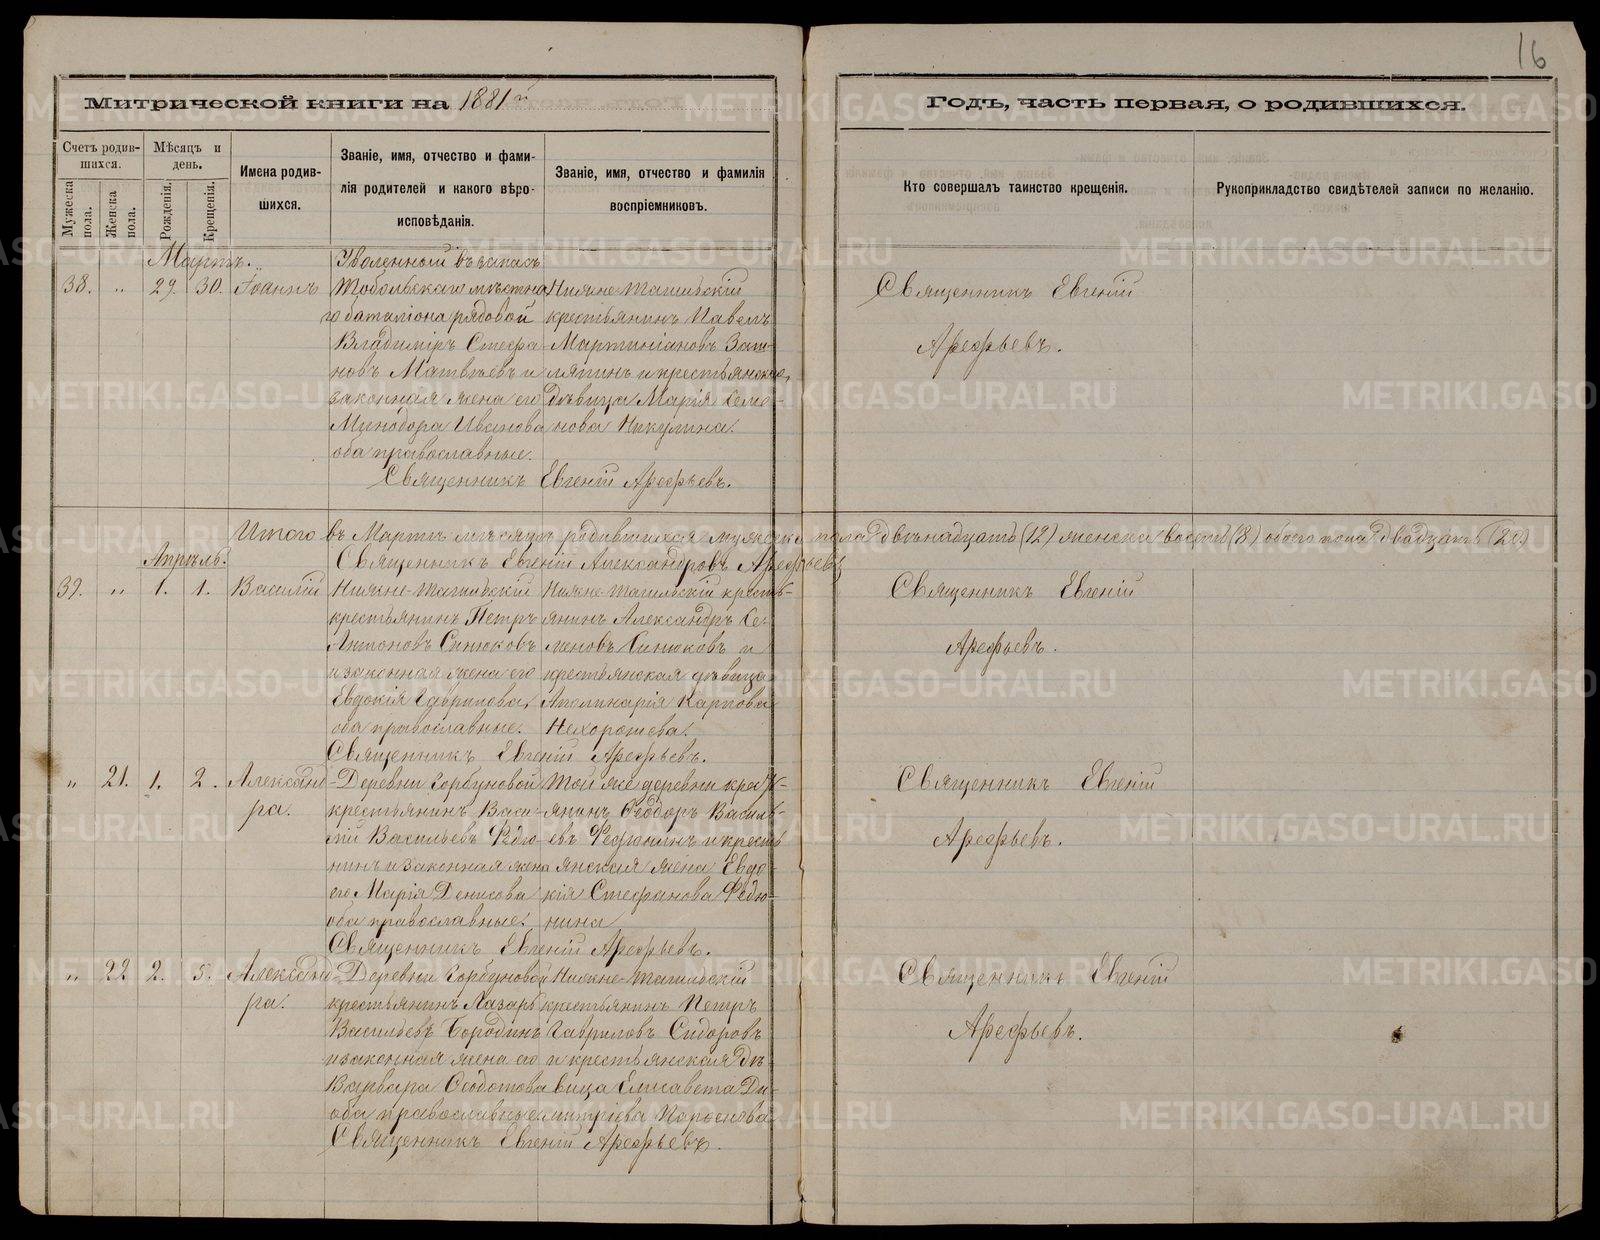 16
Митрической книги на 1881й
Годъ, часть первая, о родившихся.
Счетъ родив-
шихся.
Мужеска пола.
Женска пола.
Мѣсяцъ и
день.
Рожденія.
Крещенія.
Имена родив-
шихся.
Званіе, имя, отчество и фами-
лія родителей и какого вѣро-
исповѣданія.
Званіе, имя, отчество и фамилія
воспріемниковъ.
Кто совершалъ таинство крещенія.
Рукоприкладство свидѣтелей записи по желанію.
Мартъ.
38. „ 29. 30. Іоаннъ
Уволенный въ запасъ
Тобольскаго мѣстна
го баталіона рядовой
Владиміръ Стефа-
новъ Матвѣевъ и
законная жена его
Минодора Иванова
оба православные.
Нижне-Тагильскій
крестьянинъ Павелъ
Мартиніановъ Зам-
лятинъ и крестьянская
дѣвица Марія Семе-
нова Никулина.
Священникъ Евгеній Арефьевъ.
Священникъ Евгеній
Арефьевъ.
Итого въ Мартѣ мѣсяцѣ родившихся мужеска пола двѣнадцать (12) женска восемь (8) обоего пола двадцать (20)
Священникъ Евгеній Александровъ Арефьевъ
Апрѣль.
39. „ 1. 1. Василій
Нижне-Тагильскій
крестьянинъ Петръ
Антоновъ Синюковъ
и законная жена его
Евдокія Гаврилова,
оба православные.
Нижне-Тагильскій кресть-
янинъ Александръ Се-
меновъ Синюковъ и
крестьянская дѣвица
Аполинарія Карпова
Нехорошева.
Священникъ Евгеній Арефьевъ.
Священникъ Евгеній
Арефьевъ.
„ 21. 1. 2. Александ-
ра.
Деревни Горбуновой
крестьянинъ Васи-
лій Васильевъ Федю-
нинъ и законная жена
его Марія Денисова
оба православные.
Той же деревни кресть-
янинъ Ѳеодоръ Василь-
евъ Федюнинъ и кресть
янская жена Евдо-
кія Стефанова Федю-
нина
Священникъ Евгеній Арефьевъ.
Священникъ Евгеній
Арефьевъ.
„ 22 2. 5. Александ-
ра.
Деревни Горбуновой
крестьянинъ Лазарь
Васильевъ Бородинъ
и законная жена его
Варвара Ѳеодотова
оба православные.
Нижне-Тагильскій
крестьянинъ Петръ
Гавриловъ Сидоровъ
и крестьянская дѣ-
вица Елисавета Ди-
митріева
Священникъ Евгеній Арефьевъ.
Священникъ Евгеній
Арефьевъ.
METRIKI.GASO-URAL.RU